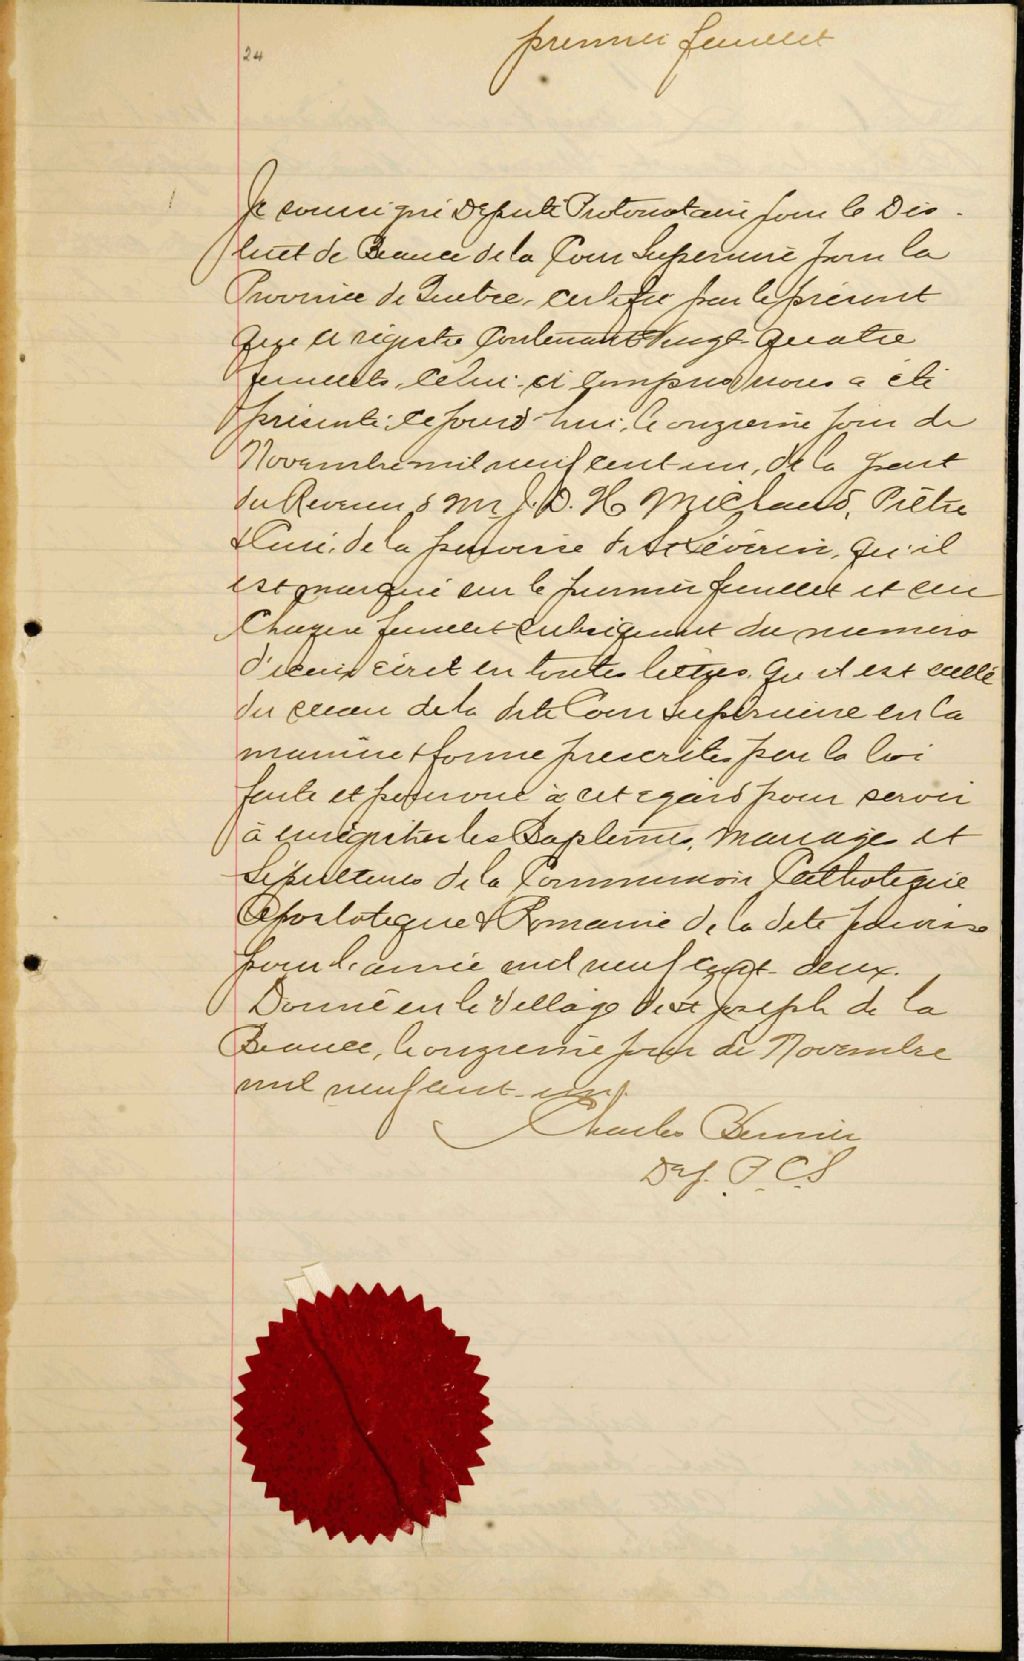 24
premier feuillet
Je soussigné Député Protonotaire pour le Dis-
trict de Beauce de la Cour Superieure pour la
Province de Quebec, certifie par le présent
que ce régistre contenant vingt-quatre
feuillets, celui-ci compris, nous a été
présenté, ce jourd'hui, le onzieme jour de
Novembre mil neuf cent un, de la part
du Reverend Mr J. D. H Michaud, Prêtre
& Curé, de la paroisse de St Séverin, qu'il
est marqué sur le premier feuillet et sur
Chaque feuillet subséquent du numéro
d'iceux écrit en toutes lettres, qu'il est scellé
du sceau de la dite Cour Superieure en la
maniere & forme prescrites par la loi
faite et pourvue à cet egard pour servir
à enrégistrer les Baptêmes, mariages et
Sépultures de la Communion Catholique
Apostolique & Romaine de la dite paroisse
pour l'année mil neuf cent deux.
Donné en le Village de St Joseph de la
Beauce, le onzieme jour de Novembre
mil neuf cent-un.
Charles Bernier
Dep. P. C. S